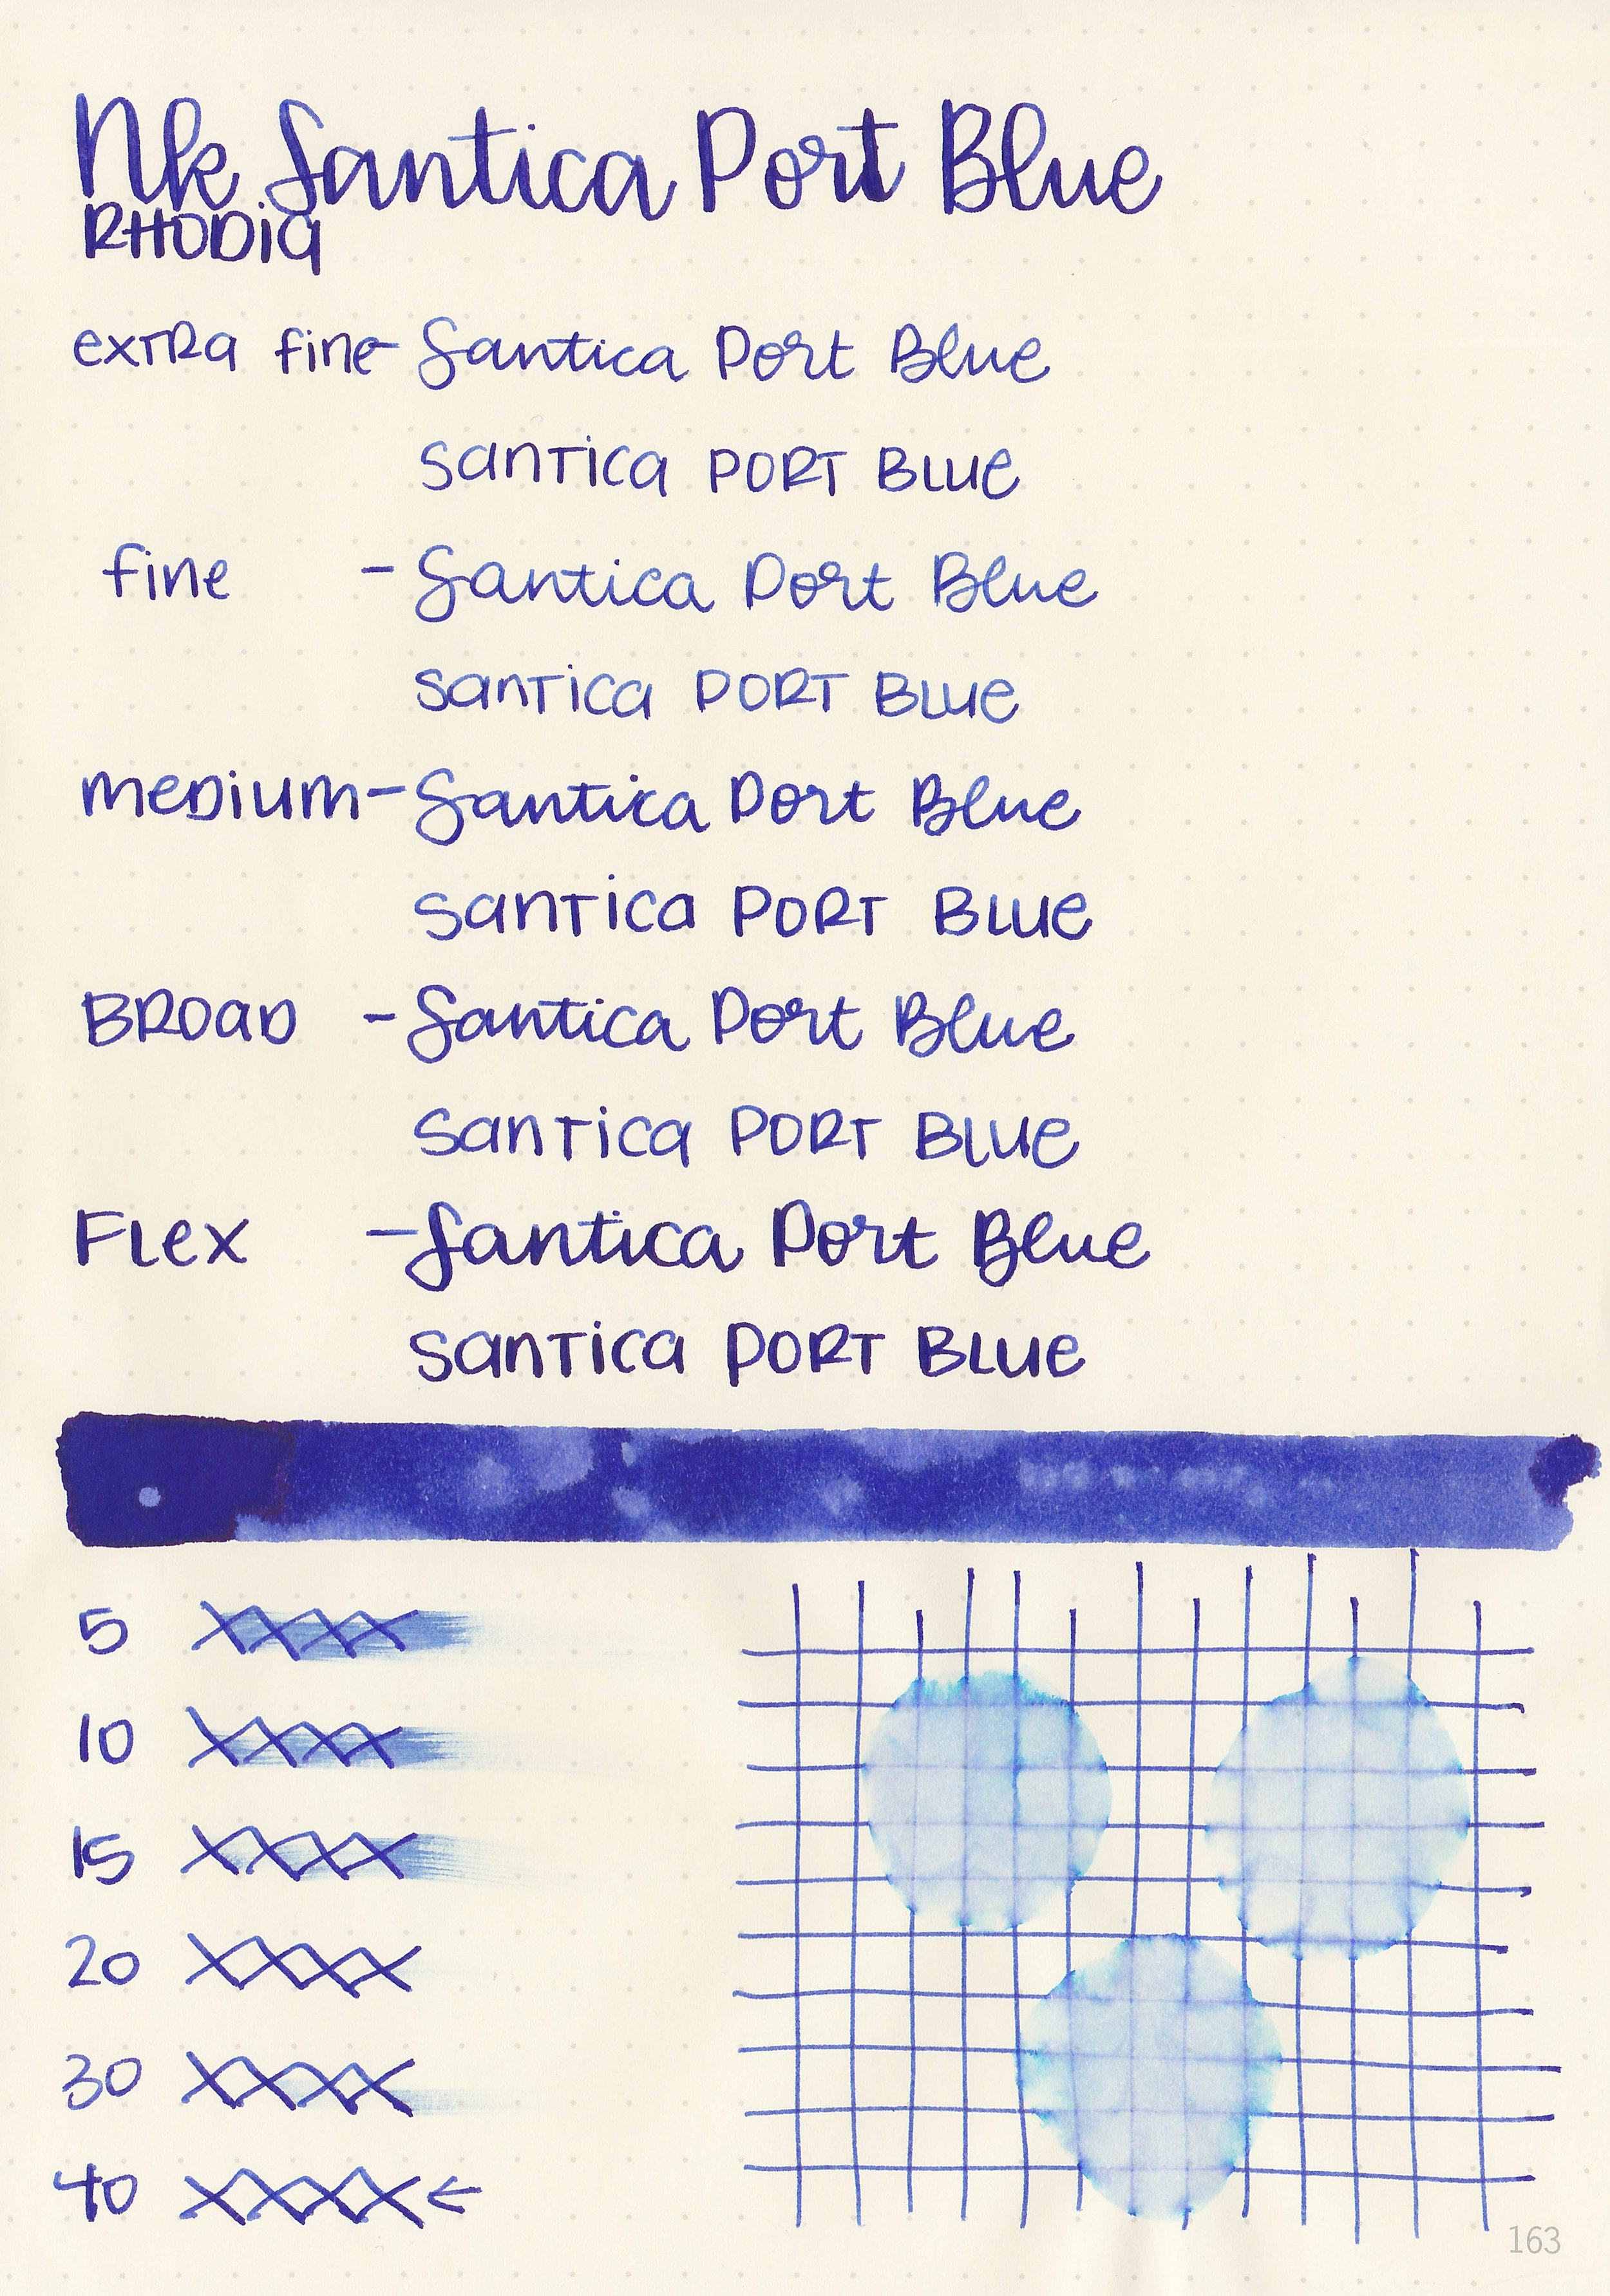 Nk Santica Port Blue
RHODia
exTRa fine - Santica Port Blue
SanTica PORT BLUe
fine - Santica Port Blue
SanTica PORT BLUe
meDium - Santica Port Blue
SanTica PORT BLUe
BROaD - Santica Port Blue
SanTica PORT BLUe
FLex - Santica Port Blue
SanTica PORT BLUe
5 XXXX
10 XXXX
15 XXXX
20 XXXX
30 XXXX
40 XXXX ←
163